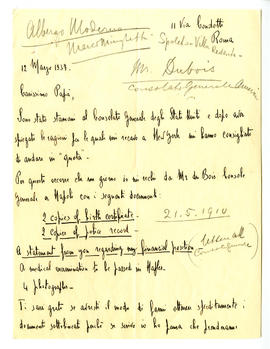 Albergo Moderno
Marco Minghetti
11 Via Condotti
Roma
12 Marzo 1939.
Mr. Dubois
Consolato Generale America
Carissimo Papi,
Sono stato stamani al Consolato Generale degli Stati Uniti e dopo aver
spiegato le ragioni per le quali mi recavo a New York mi hanno consigliato
di andare in "quota".
Per questo occorre che un giorno io mi rechi da Mr du Bois Console
Generale a Napoli con i seguenti documenti:
2 copies of birth certificate. 21.5.1910
2 copies of police record.
A statement from you regarding my financial position
A medical examination to be passed in Naples.
4 photographs.
Ti sarei grato se avessi il modo di farmi ottenere speditamente i
documenti sottolineati poichè se scrivo io ho paura che prendano